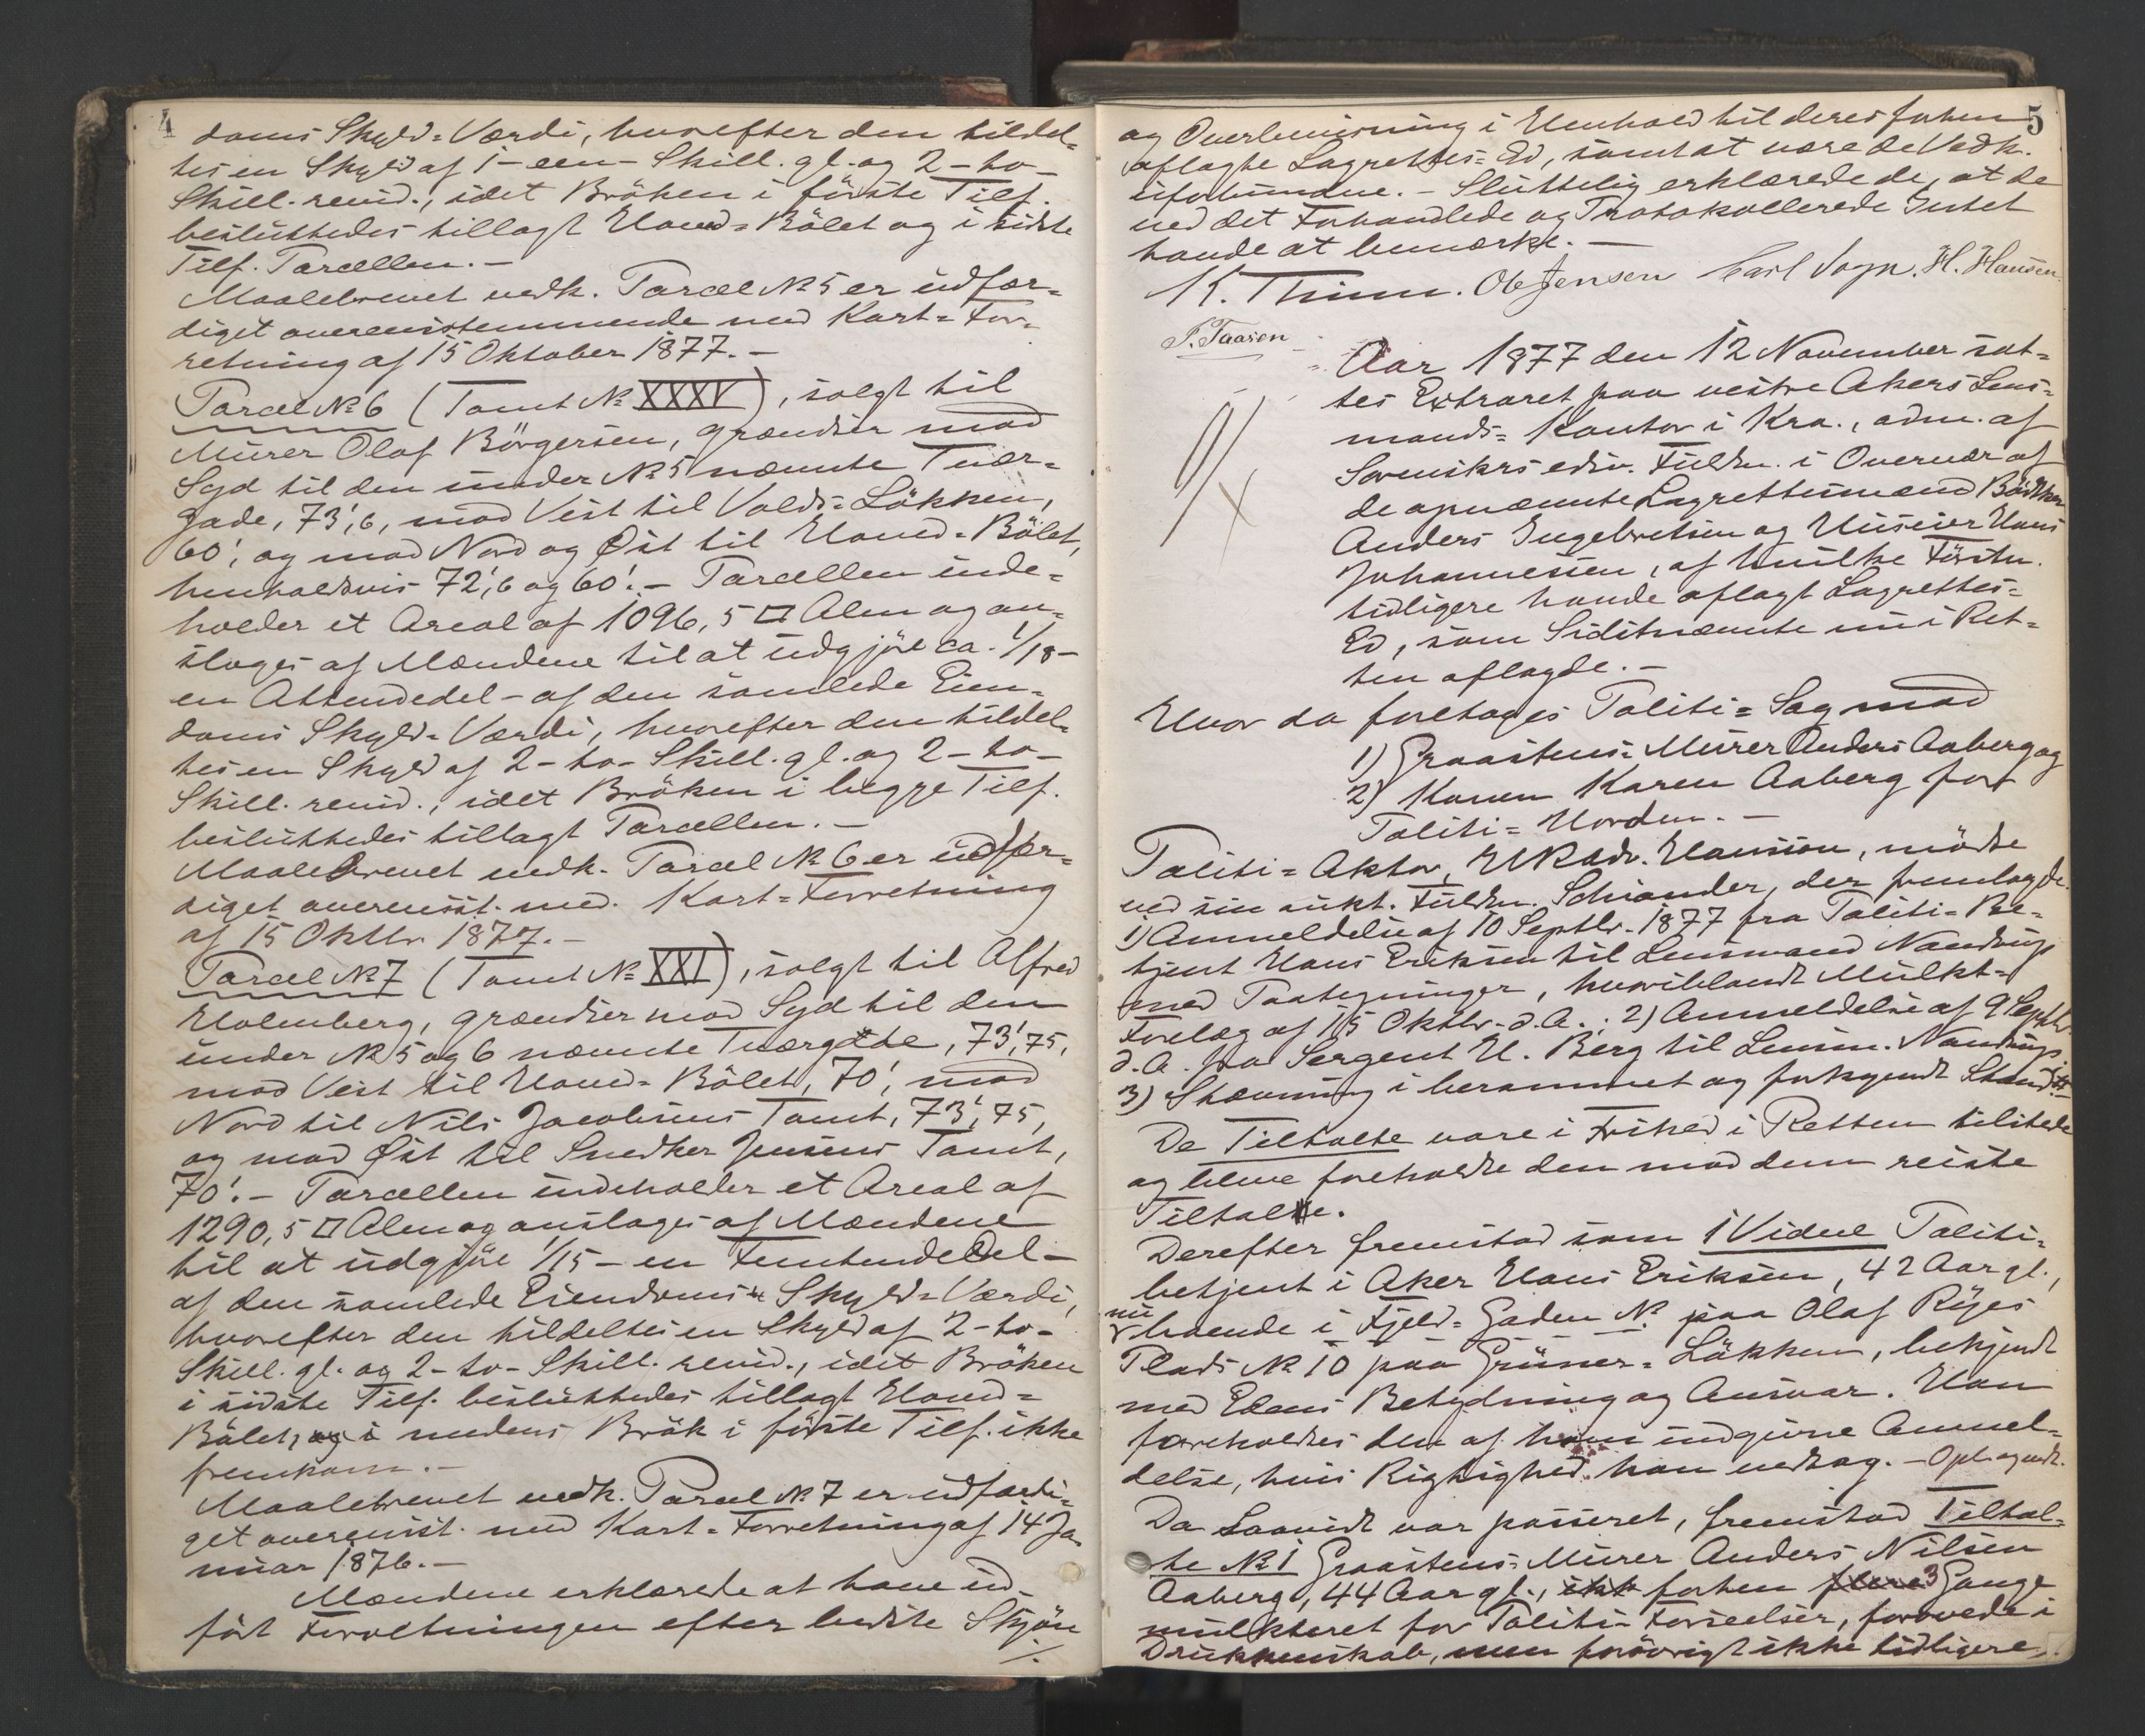 4
doms Skyld=Værdi, hvorefter den tildel-
tes en Skyld af 1-een-Skill. gl. og 2-to-
Skill. revid., idet Bröken i förste Tilf.
besluttedes tillagt Hoved=Bölet og i sidste
Tilf. Parcellen.-
Maalebrevet vedk. Parcel No 5 er udfær=
diget overensstemmende med Kart=For=
retning af 15 Oktober 1877.-
Parcel No 6 (Tomt No XXXV), solgt til
Murer Olaf Börgersen, grændser mod
Syd til den under No 5 nævnte Tvær=
Gade, 73',6, mod Vest til Volds=Lökken,
60', og mod Nord og Øst til Hoved=Bölet,
henholdsvis 72',6 og 60'.- Parcellen inde=
holder et Areal af 1096,5 □ Alen og an=
slages af Mændene til at udgjöre ca. 1/18-
en Attendedel- af den samlede Eien=
doms Skyld=Værdi, hvorefter den tildel=
tes en Skyld af 2-to-Skill. gl. og 2-to-
Skill. revid., idet Bröken i begge Tilf.
besluttedes tillagt Parcellen.-
Maalebrevet vedk. Parcel No 6 er udfær=
diget overensst. med. Kart=Forretning
af 15 Oktbr. 1877.-
Parcel No 7 (Tomt No XXI), solgt til Alfred
Holmberg, grændser mod Syd til den
under No 5 og 6 nævnte Tværgade, 73',75,
mod Vest til Hoved=Bölet, 70', mod
Nord til Nils Jacobsens Tomt, 73',75,
og mod Øst til Snedker Jensens Tomt,
70'.- Parcellen indeholder et Areal af
1290,5 □ Alen og anslages af Mændene
til at udgjöre 1/15-en Femtendedel-
af den samlede Eiendoms Skyld=Værdi,
hvorefter den tildeltes en Skyld af 2-to-
Skill. gl. og 2-to-Skill. revid., idet Bröken
i sidste Tilf. besluttedes tillagt Hoved=
Bölet, og i medens Brök i förste Tilf. ikke
fremkom.-
Maalebrevet vedk. Parcel No 7 er udfærdi=
get overensst. med Kart=Forretning af 14 Ja=
nuar 1876.-
Mændene erklærede at have ud-
fört Forretningen efter bedste Skjön
./.
5
og Overbevisning i Henhold til deres forhen
aflagte Lagrettes=Ed, samt at være de Vedk.
uforbundne.- Sluttelig erklærede de, at de
ved det Forhandlede og Protokollerede Intet
havde at bemærke.-
K. Thinn. Ole Jensen Carl Jogn. H. Hansen
P. Taasen
Aar 1877 den 12 November sat=
tes Extraret paa vestre Akers Lens=
mands=Kontor i Kra., adm. af
Sorenskrs edsv. Fuldm. i Overvær af
de opnævnte Lagrettesmænd Bödtker
Anders Ingebretsen og Huseier Hans
Johannesen, af hvilke Förstn.
tidligere havde aflagt Lagrettes=
Ed, som Sidstnævnte nu i Ret=
ten aflagde.-
Hvor da foretages Politi=Sag mod
1) Graastens=Murer Anders Aaberg og
2) Konen Karen Aaberg for
Politi=Uorden.-
Politi=Aktor, HRAdv. Hansson, mödte
ved sin autt. Fuldm. Schiander, der fremlagde
1) Anmeldelse af 10 Septbr. 1877 fra Politi=Be=
tjent Hans Eriksen til Lensmand Nandrup
med Paategninger, hvoriblandt Mulkt=
Forelæg af 15 Oktbr. d. A.; 2) Anmeldelse af 9 Septbr.
d. A. fra Sergent H. Berg til Lensm. Nandrup.
3) Stævning i berammet og forkyndt Stand.
De Tiltalte vare i Frihed i Retten tilstede
og bleve foreholdte den mod dem reiste
Tiltale.
Derefter fremstod som 1 Vidne Politi=
betjent i Aker Hans Eriksen, 42 Aar gl.,
nu
boende i Fjeld=Gaden No paa Olaf Ryes
Plads No 10 paa Grüner=Lökken, bekjendt
med Edens Betydning og Ansvar. Han
foreholdtes den af ham indgivne Anmel=
delse, hvis Rigtighed han vedtog.- Opl. og vedt.
Da Saavidt var passeret, fremstod Tiltal=
te No 1 Graastens=Murer Anders Nilsen
Aaberg, 44 Aar gl., ikke forhen flere 3 Gange
mulkteret for Politi=Forseelser, forövede i
Drukkenskab, men forövrigt ikke tidligere